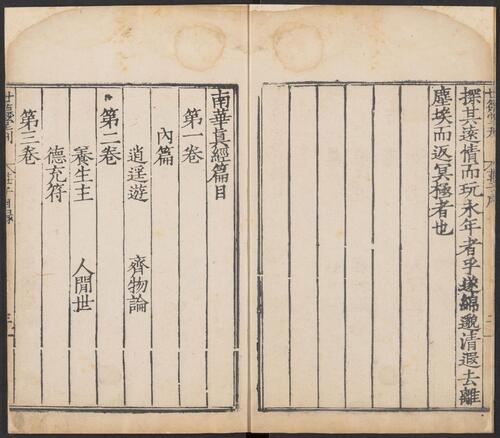 探其遠情而玩永年者乎遂綿邈清遐去離
塵埃而返冥極者也
南華真經篇目
第一卷
內篇
逍遥遊 齊物論
第二卷
養生主 人間世
德充符
第三卷